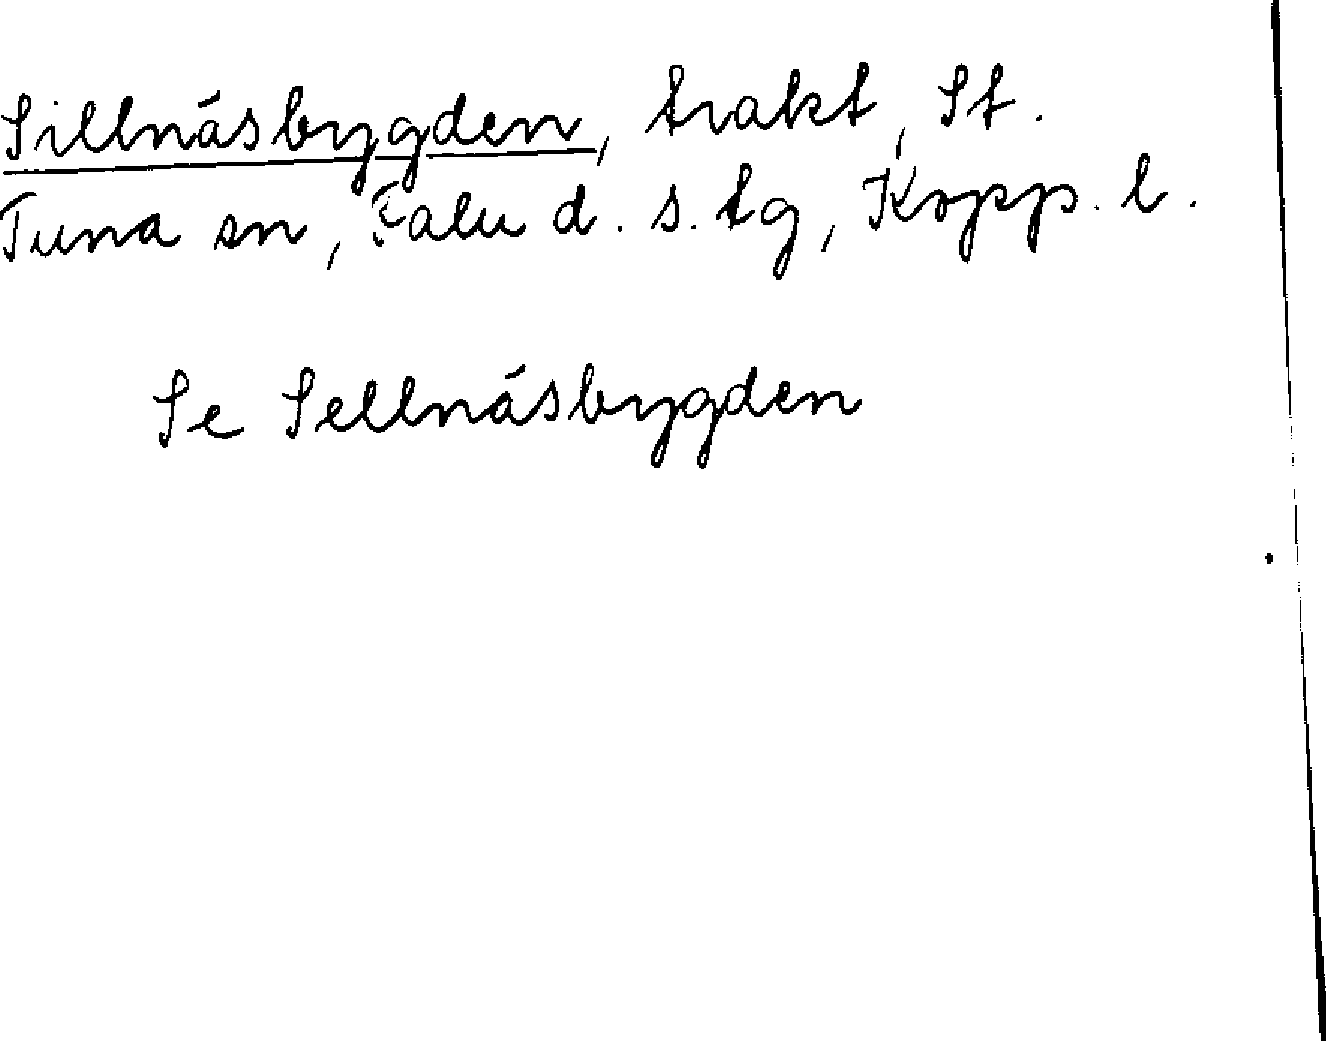 Sillnäsbygden, trakt, St.
Tuna sn, Falu d. s. tg, Kopp. l.
Se Sellnäsbygden